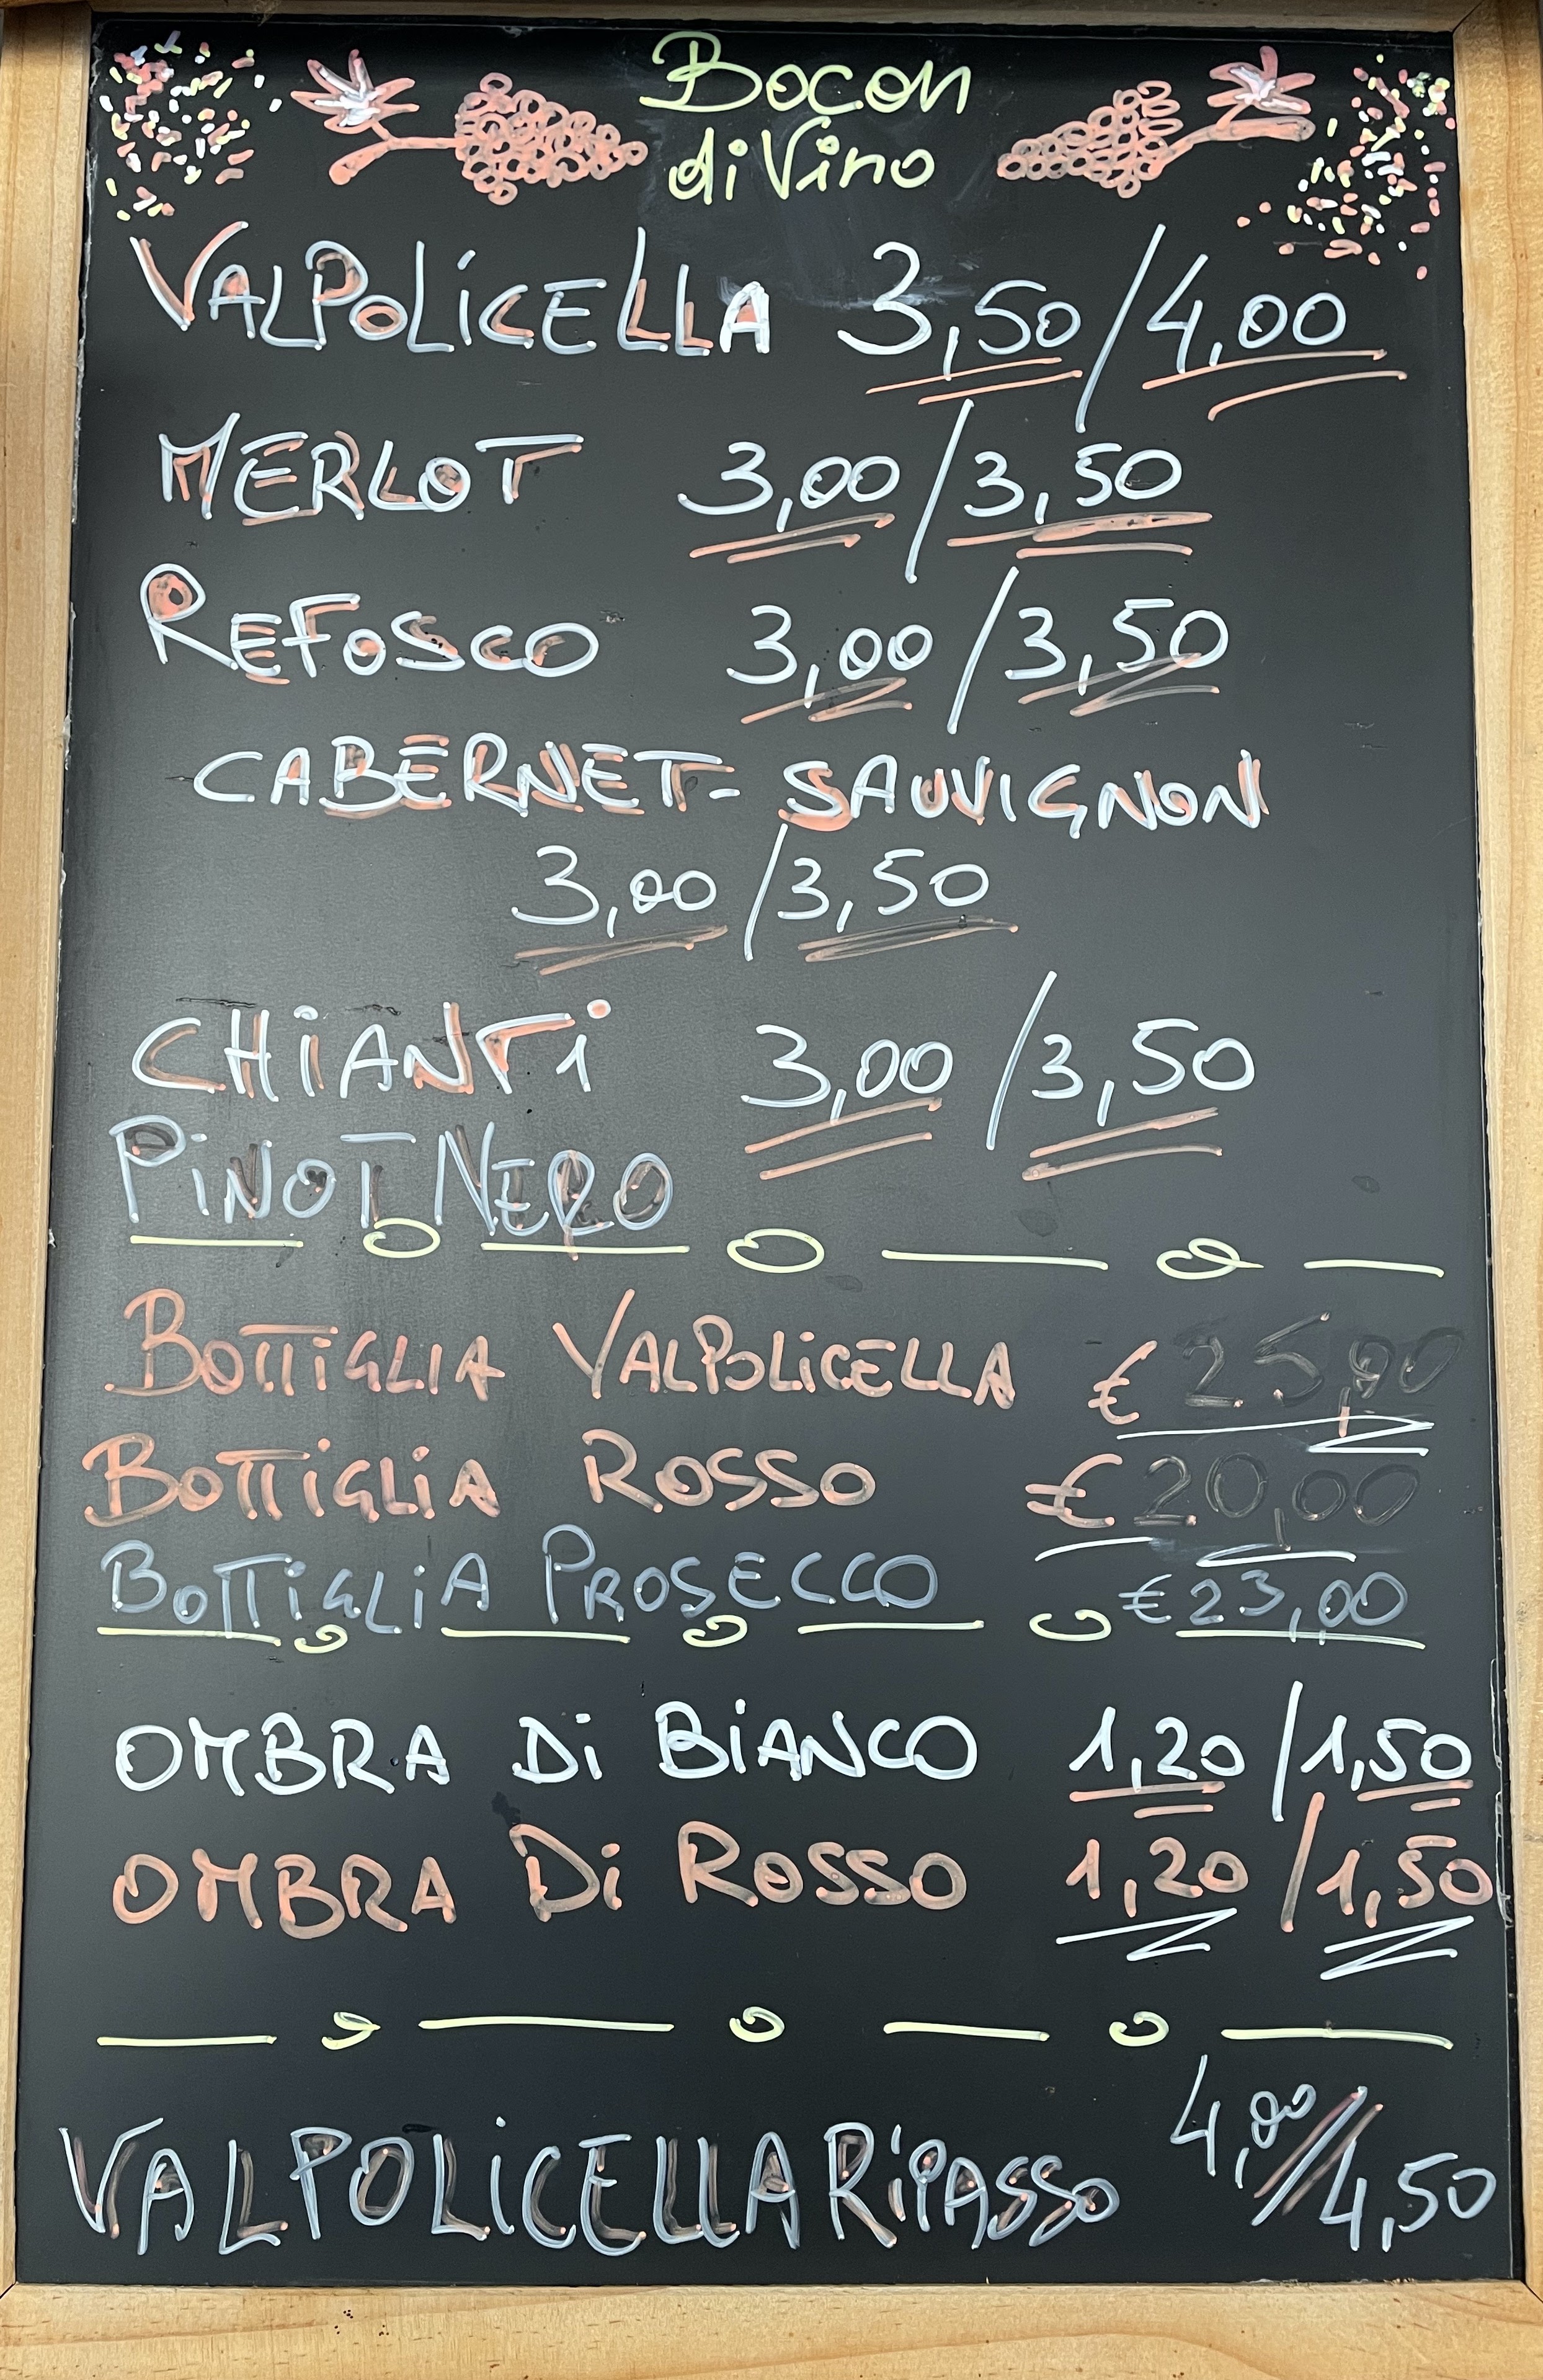 Bocon
di Vino
VALPOLiCELLA 3,50/4,00
MERLOT 3,00/3,50
REFOSCO 3,00/3,50
CABERNET- SAUVIGNON
3,00/3,50
CHiANTi 3,00/3,50
PiNOT NERO
BOTTiGLIA VALPOLiCELLA € 25,00
BOTTiGLiA ROSSO € 20,00
BOTTiGLiA PROSECCO € 23,00
OMBRA Di BiANCO 1,20/1,50
OMBRA Di ROSSO 1,20/1,50
VALPOLiCELLA RiPASSO 4,00/4,50